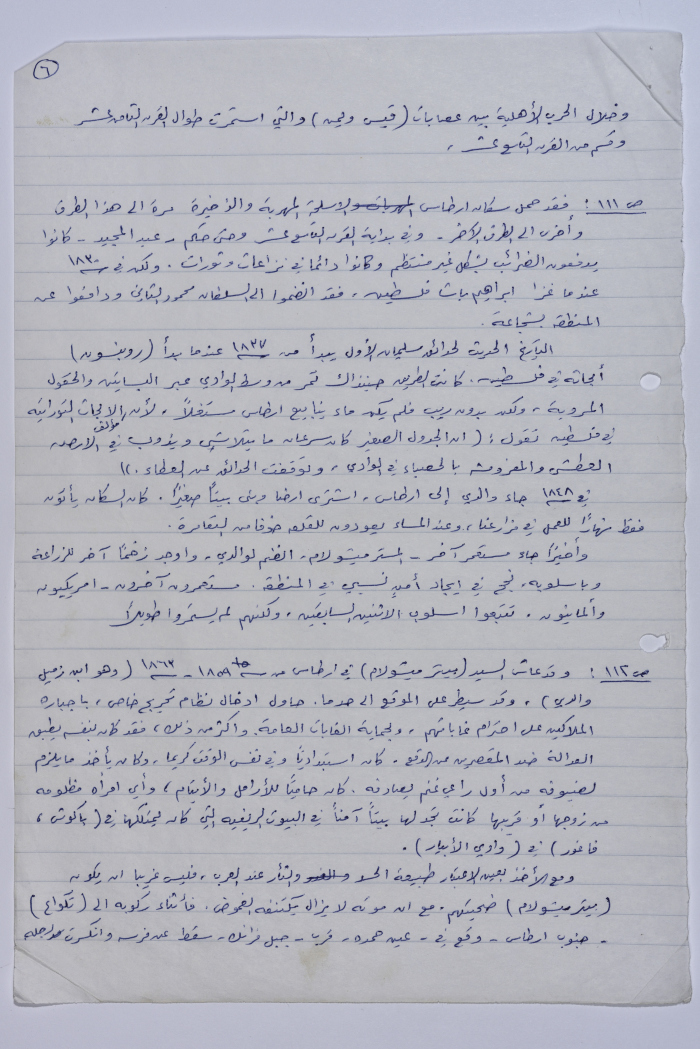 ٦
وخلال الحرب الأهلية بين عصابات (قيس ويمن) والتي استمرت طوال القرن الثامن عشر
وقسم من القرن التاسع عشر.
ص ١١١: فقد حمل سكان ارطاس المهربات والاسلحة المهربة والذخيرة مرة الى هذا الطرف
وأخرى الى الطرف الآخر - وفي بداية القرن التاسع عشر وحتى حكم - عبد المجيد - كانوا
يدفعون الضرائب بشكل غير منتظم وكانوا دائما في نزاعات وثورات. ولكن في ١٨٣٠
عندما غزا ابراهيم باشا فلسطين، فقد انضموا الى السلطان محمود الثاني ودافعوا عن
المنطقة بشجاعة.
التاريخ الحديث لحدائق سليمان الأول يبدأ من ١٨٣٧ عندما بدأ (روبنسون)
أبحاثه في فلسطين. كانت الطريق حينذاك تمر من وسط الوادي عبر البساتين والحقول
المروية، ولكن بدون ريب فلم يكن ماء ينابيع ارطاس مستغلاً، لأن مؤلف الابحاث التوراتية
في فلسطين تقول: (ان الجدول الصغير كان سرعان ما يتلاشى ويذوب في الارض
العطشى والمفروشة بالحصباء في الوادي، وتوقفت الحدائق عن العطاء.))
في ١٨٤٨ جاء والدي إلى ارطاس، اشترى ارضا وبنى بيتاً صغيرًا. كان السكان يأتون
فقط نهارًا للعمل في مزارعنا، وعند المساء يعودون للقلعه خوفا من التعامرة.
وأخيرًا جاء مستعمر آخر - المستر ميشولام، انضم لوالدي، واوجد زخمًا آخر للزراعة
وباسلوبه، نجح في ايجاد أمنٍ نسبي في المنطقة. مستعمرون آخرون - امريكيون
وألمانيون. تتبعوا اسلوب الاثنين السابقين، ولكنهم لم يستمروا طويلاً
ص ١١٢: وقد عاش السيد (بيتر ميشولام) في ارطاس من ١٨٥٩ - ١٨٦٣ (وهو ابن زميل
والدي)، وقد سيطر على الموقع الى حد ما. حاول ادخال نظام تحريج خاص، باجباره
الملاكين على احترام غاباتهم، ولحماية الغابات العامة. واكثر من ذلك، فقد كان بنفسه يطبق
العدالة ضد المقصرين عن الدفع. كان استبداديًا وفي نفس الوقت كريما، وكان يأخذ ما يلزم
لضيوفه من أول راعي غنم يصادفه. كان حاميًا للأرامل والأيتام، وأي امرأه مظلومه
من زوجها أو قريبها كانت تجد لها بيتاً آمناً في البيوت الريفيه التي كان يمتلكها في (باكوش،
فاغور) في (وادي الأبيار).
ومع الأخذ بعين الاعتبار طبيعة والثأر عند العرب، فليس غريبا ان يكون
(بيتر ميشولام) ضحيتهم. مع ان موته لا يزال يكتنفه الغموض. فأثناء ركوبه الى (تكواع)
- جنوب ارطاس - وقع في - عين حمده، قرب - جبل فرانك، سقط عن فرسه وانكسرت